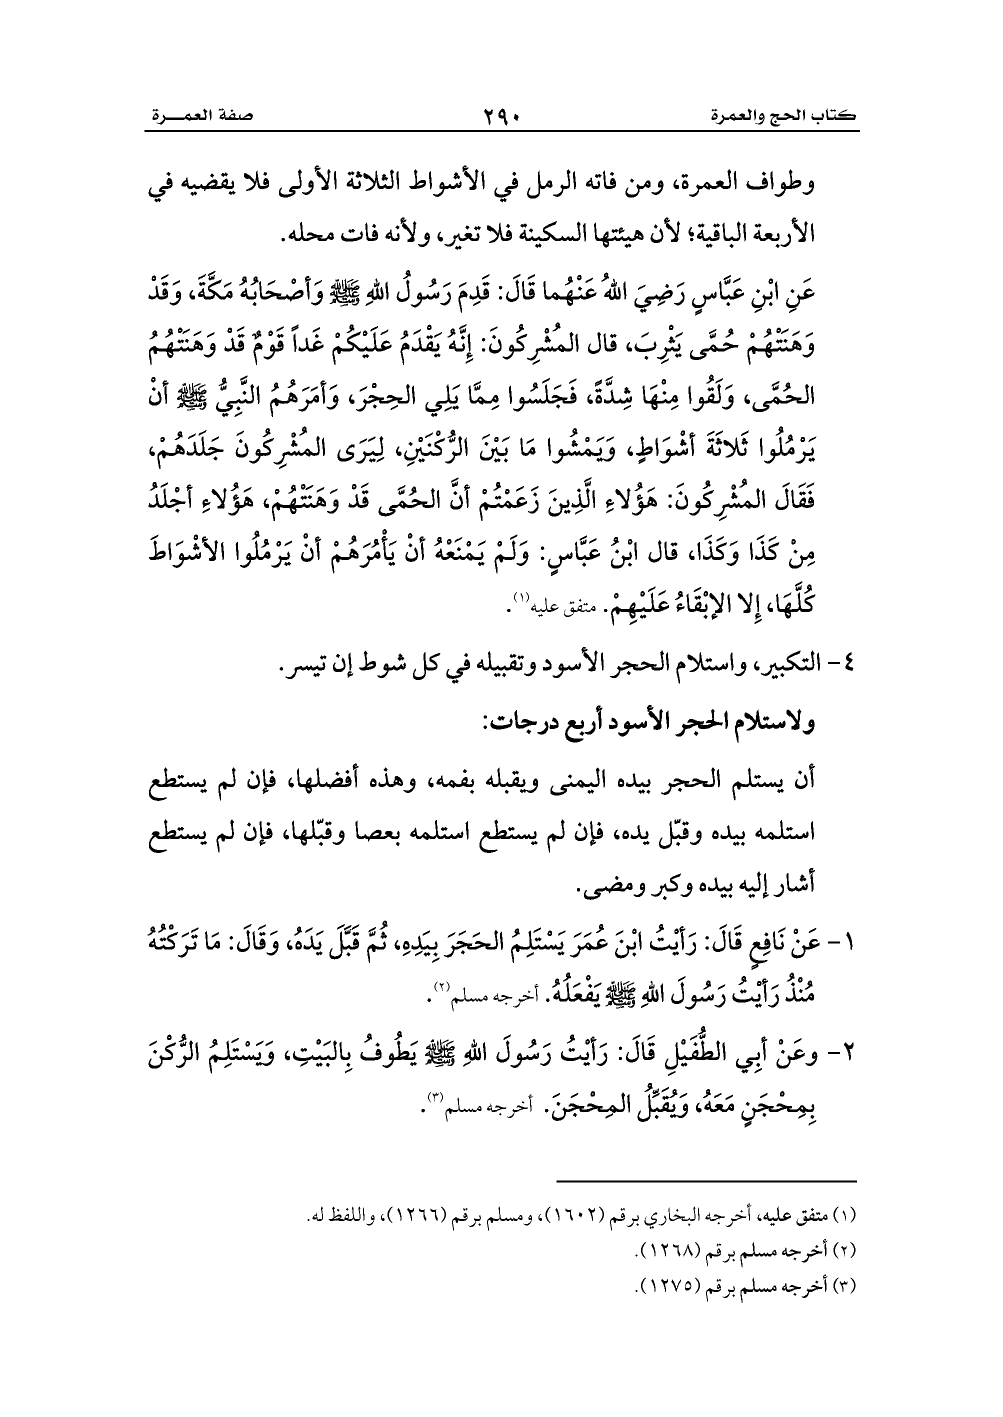 كتاب الحج والعمرة ٢٩٠ صفة العمـــرة
وطواف العمرة، ومن فاته الرمل في الأشواط الثلاثة الأولى فلا يقضيه في
الأربعة الباقية؛ لأن هيئتها السكينة فلا تغير، ولأنه فات محله.
عَنِ ابْنِ عَبَّاسٍ رَضِيَ اللهُ عَنْهُما قَالَ: قَدِمَ رَسُولُ اللهِ ﷺ وَأصْحَابُهُ مَكَّةَ، وَقَدْ
وَهَنَتْهُمْ حُمَّى يَثْرِبَ، قال المُشْرِكُونَ: إِنَّهُ يَقْدَمُ عَلَيْكُمْ غَداً قَوْمٌ قَدْ وَهَنَتْهُمُ
الحُمَّى، وَلَقُوا مِنْهَا شِدَّةً، فَجَلَسُوا مِمَّا يَلِي الحِجْرَ، وَأمَرَهُمُ النَّبِيُّ ﷺ أنْ
يَرْمُلُوا ثَلاثَةَ أشْوَاطٍ، وَيَمْشُوا مَا بَيْنَ الرُّكْنَيْنِ، لِيَرَى المُشْرِكُونَ جَلَدَهُمْ،
فَقَالَ المُشْرِكُونَ: هَؤُلاءِ الَّذِينَ زَعَمْتُمْ أنَّ الحُمَّى قَدْ وَهَنَتْهُمْ، هَؤُلاءِ أجْلَدُ
مِنْ كَذَا وَكَذَا، قال ابْنُ عَبَّاسٍ: وَلَمْ يَمْنَعْهُ أنْ يَأْمُرَهُمْ أنْ يَرْمُلُوا الأشْوَاطَ
كُلَّهَا، إِلا الإبْقَاءُ عَلَيْهِمْ. متفق عليه(١).
٤- التكبير، واستلام الحجر الأسود وتقبيله في كل شوط إن تيسر.
ولاستلام الحجر الأسود أربع درجات:
أن يستلم الحجر بيده اليمنى ويقبله بفمه، وهذه أفضلها، فإن لم يستطع
استلمه بيده وقبّل يده، فإن لم يستطع استلمه بعصا وقبّلها، فإن لم يستطع
أشار إليه بيده وكبر ومضى.
١- عَنْ نَافِعٍ قَالَ: رَأيْتُ ابْنَ عُمَرَ يَسْتَلِمُ الحَجَرَ بِيَدِهِ، ثُمَّ قَبَّلَ يَدَهُ، وَقَالَ: مَا تَرَكْتُهُ
مُنْذُ رَأيْتُ رَسُولَ اللهِ ﷺ يَفْعَلُهُ. أخرجه مسلم(٢).
٢- وعَنْ أبِي الطُّفَيْلِ قَالَ: رَأيْتُ رَسُولَ اللهِ ﷺ يَطُوفُ بِالبَيْتِ، وَيَسْتَلِمُ الرُّكْنَ
بِمِحْجَنٍ مَعَهُ، وَيُقَبِّلُ المِحْجَنَ. أخرجه مسلم(٣).
(١) متفق عليه، أخرجه البخاري برقم (١٦٠٢)، ومسلم برقم (١٢٦٦)، واللفظ له.
(٢) أخرجه مسلم برقم (١٢٦٨).
(٣) أخرجه مسلم برقم (١٢٧٥).